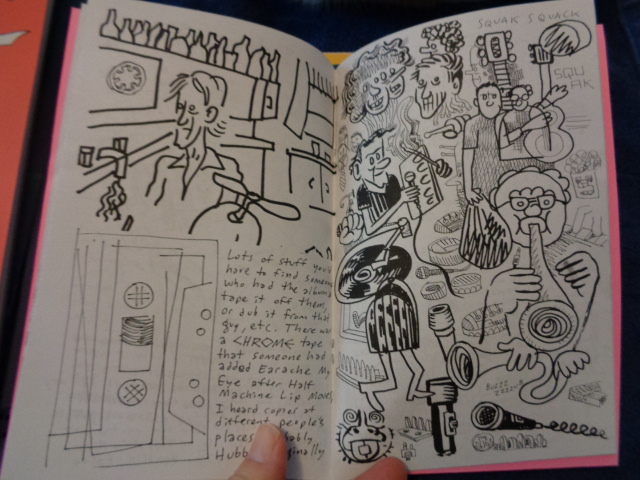 Lots of stuff you'd
have to find someone
who had the album
tape it off them,
or dub it from that
guy, etc. There was
a CHROME tape
that someone had
added Earache My
Eye after Half
Machine Lip Moves
I heard copies at
different people's
places
Hubb
SQUAK SQUACK
SQU
AK
BUZZZ